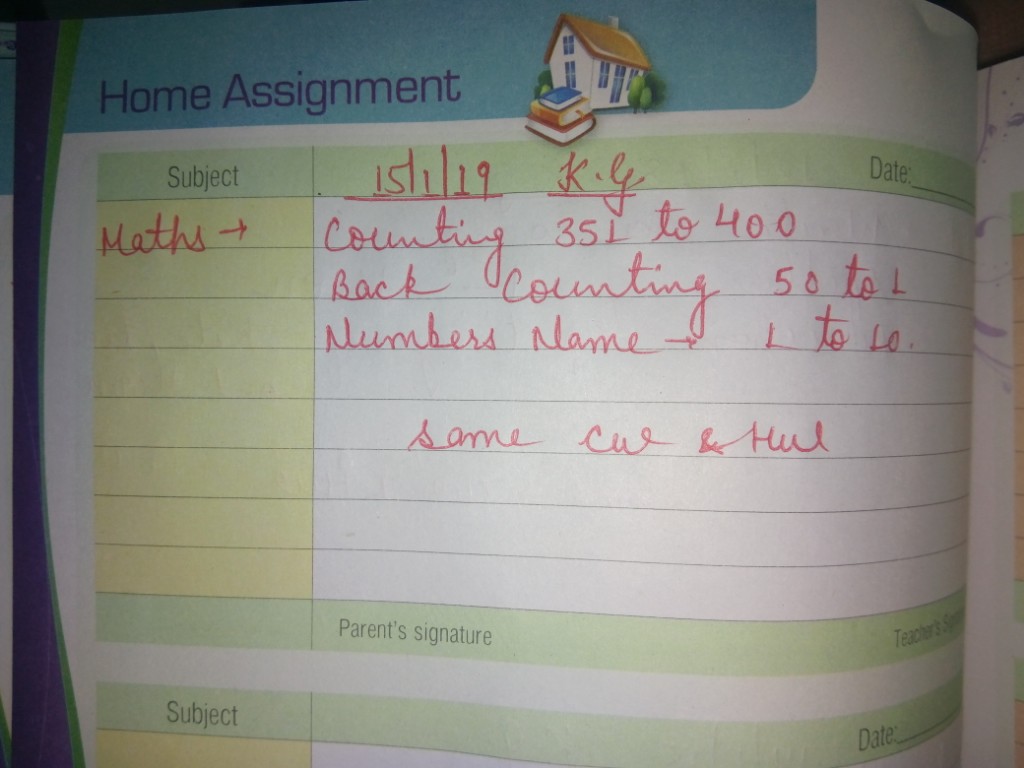 Home Assignment
Subject 15/1/19 K.G Date:
Maths → Counting 351 to 400
Back Counting 50 to 1
Numbers Name → 1 to 10.
Same Cw & Hw
Parent's signature Teacher's
Subject Date: